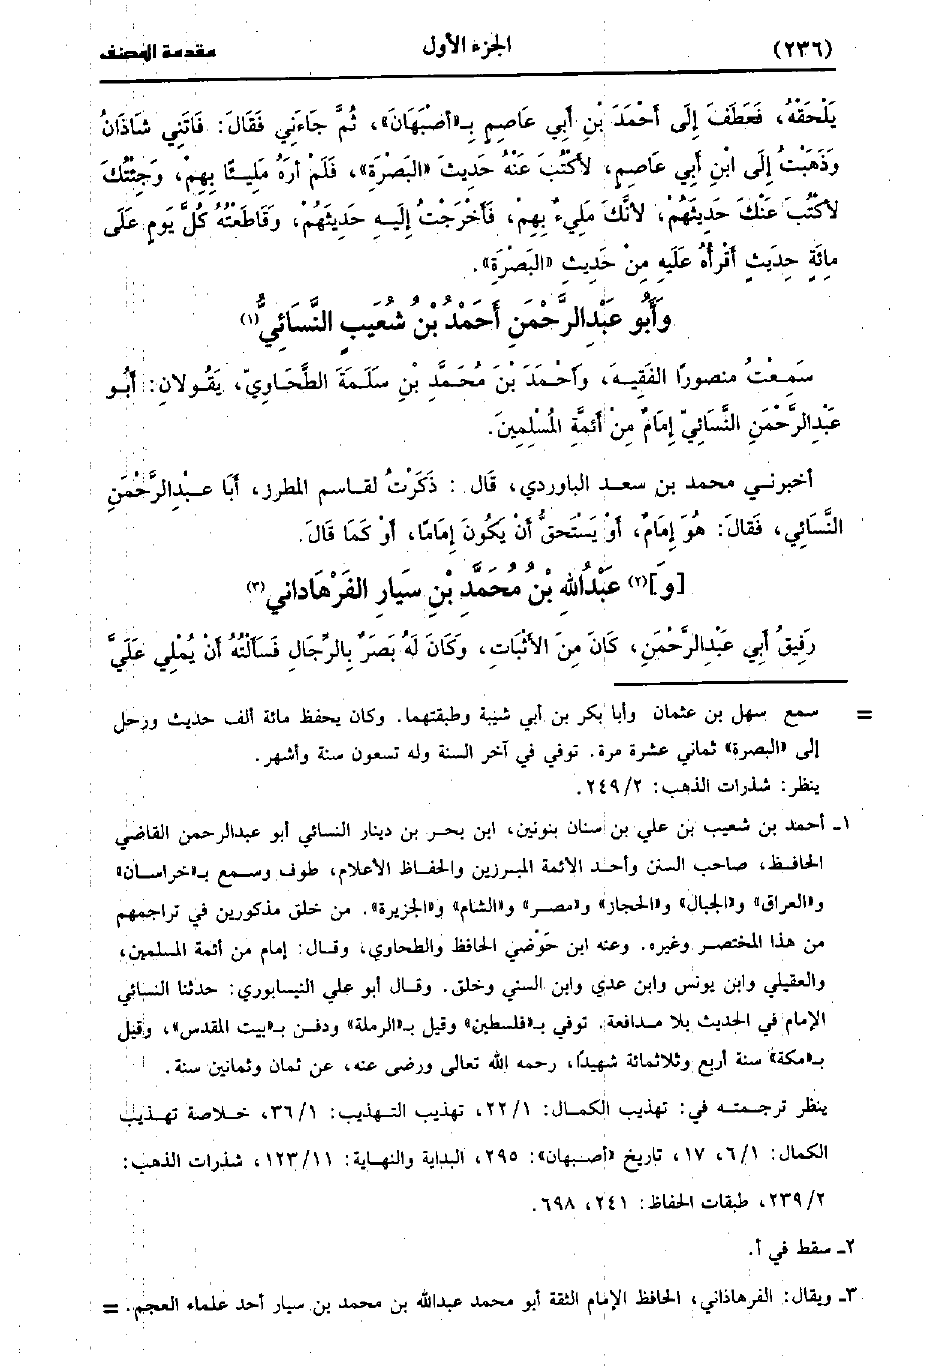 (٢٣٦) الجزء الأول مقدمة المصنف
يَلْحَقْهُ، فَعَطَفَ إِلَى أَحْمَدَ بْنِ أَبِي عَاصِمٍ بِـ«أَصْبَهَانَ»، ثُمَّ جَاءَنِي فَقَالَ: فَاتَنِي شَاذَانُ
وَذَهَبْتُ إِلَى ابْنِ أَبِي عَاصِمٍ، لأَكْتُبَ عَنْهُ حَدِيثَ «البَصْرَةِ»، فَلَمْ أَرَهُ مَلِيـئًا بِهِمْ، وَجِئْتُكَ
لأَكْتُبَ عَنْكَ حَدِيثَهُمْ، لأَنَّكَ مَلِيءٌ بِهِمْ، فَأَخْرَجْتُ إِلَيـهِ حَدِيثَهُمْ، وَقَاطَعْتُهُ كُلَّ يَومٍ عَلَى
مِائَةِ حَدِيثٍ أَقْرَأُهُ عَلَيهِ مِنْ حَدِيثِ «البَصْرَةِ».
وَأَبُو عَبْدِالرَّحْمَنِ أَحْمَدُ بْنُ شُعَيبٍ النَّسَائِيُّ(١)
سَمِعْتُ منصورًا الفقيـهَ، وَأَحْمَدَ بْنَ مُحَمَّدِ بْنِ سَلَمَةَ الطَّحَاوِيّ، يَقُولان: أَبُو
عَبْدِالرَّحْمَنِ النَّسَائِيّ إِمَامٌ مِنْ أَئمَّةِ المُسْلِمِينَ.
أخبرنـي محمد بن سعـد الباوردي، قَال : ذَكَرْتُ لقـاسم المطرز، أَبَا عَـبْدِالرَّحْمَنِ
النَّسَائِي، فَقَالَ: هُوَ إِمَامٌ، أَوْ يَسْتَحقُّ أَنْ يَكُونَ إِمَامًا، أَوْ كَمَا قَالَ.
[وَ](٢) عَبْدُاللهِ بْنُ مُحَمَّدِ بْنِ سَيارِ الفَرْهَادَانِي(٣)
رَفِيقُ أَبِي عَبْدِالرَّحْمَنِ، كَانَ مِنَ الأَثْبَاتِ، وَكَانَ لَهُ بَصَرٌ بِالرِّجَالِ فَسَأَلْتُهُ أَنْ يُمْلِي عَلَيَّ
= سمع سهل بن عثمان وأبا بكر بن أبي شيبة وطبقتهما. وكان يحفظ مائة ألف حديث ورحل
إلى «البصرة» ثماني عشرة مرة. توفي في آخر السنة وله تسعون سنة وأشهر.
ينظر: شذرات الذهب: ٢/ ٢٤٩.
١ـ أحمد بن شعيب بن علي بن سنان بنونين، ابن بحـر بن دينار النسائي أبو عبدالرحمن القاضي
الحافظ، صاحب السنن وأحـد الأئمة المبرزين والحفـاظ الأعلام، طوف وسـمع بـ«خراسـان»
و«العراق» و«الجبال» و«الحجاز» و«مصـر» و«الشام» و«الجزيرة». من خلق مذكورين في تراجمهم
من هذا المختصـر وغيره. وعنه ابن حَوْضي الحافظ والطحاوي، وقـال: إمام من أئمة المسلمين،
والعقيلي وابن يونس وابن عدي وابن السني وخلق. وقـال أبو علي النيسابوري: حدثنا النسائي
الإمام في الحديث بلا مـدافعة. توفي بـ«فلسطين» وقيل بـ«الرملة» ودفـن بـ«بيت المقدس»، وقيل
بـ«مكة» سنة أربع وثلاثمائة شهيدًا، رحمه الله تعالى ورضى عنه، عن ثمان وثمانين سنة.
ينظر ترجمتـه في: تهذيب الكمال: ١/ ٢٢، تهذيب التـهذيب: ١/ ٣٦، خـلاصة تهـذيب
الكمال: ١/ ٦، ١٧، تاريخ «أصـبهان»: ٢٩٥، البداية والنهـاية: ١١/ ١٢٣، شذرات الذهب:
٢/ ٢٣٩، طبقات الحفاظ: ٢٤١، ٦٩٨.
٢ـ سقط في أ.
٣ـ ويقال: الفرهاذاني، الحافظ الإمام الثقة أبو محمد عبدالله بن محمد بن سيار أحد علماء العجم. =